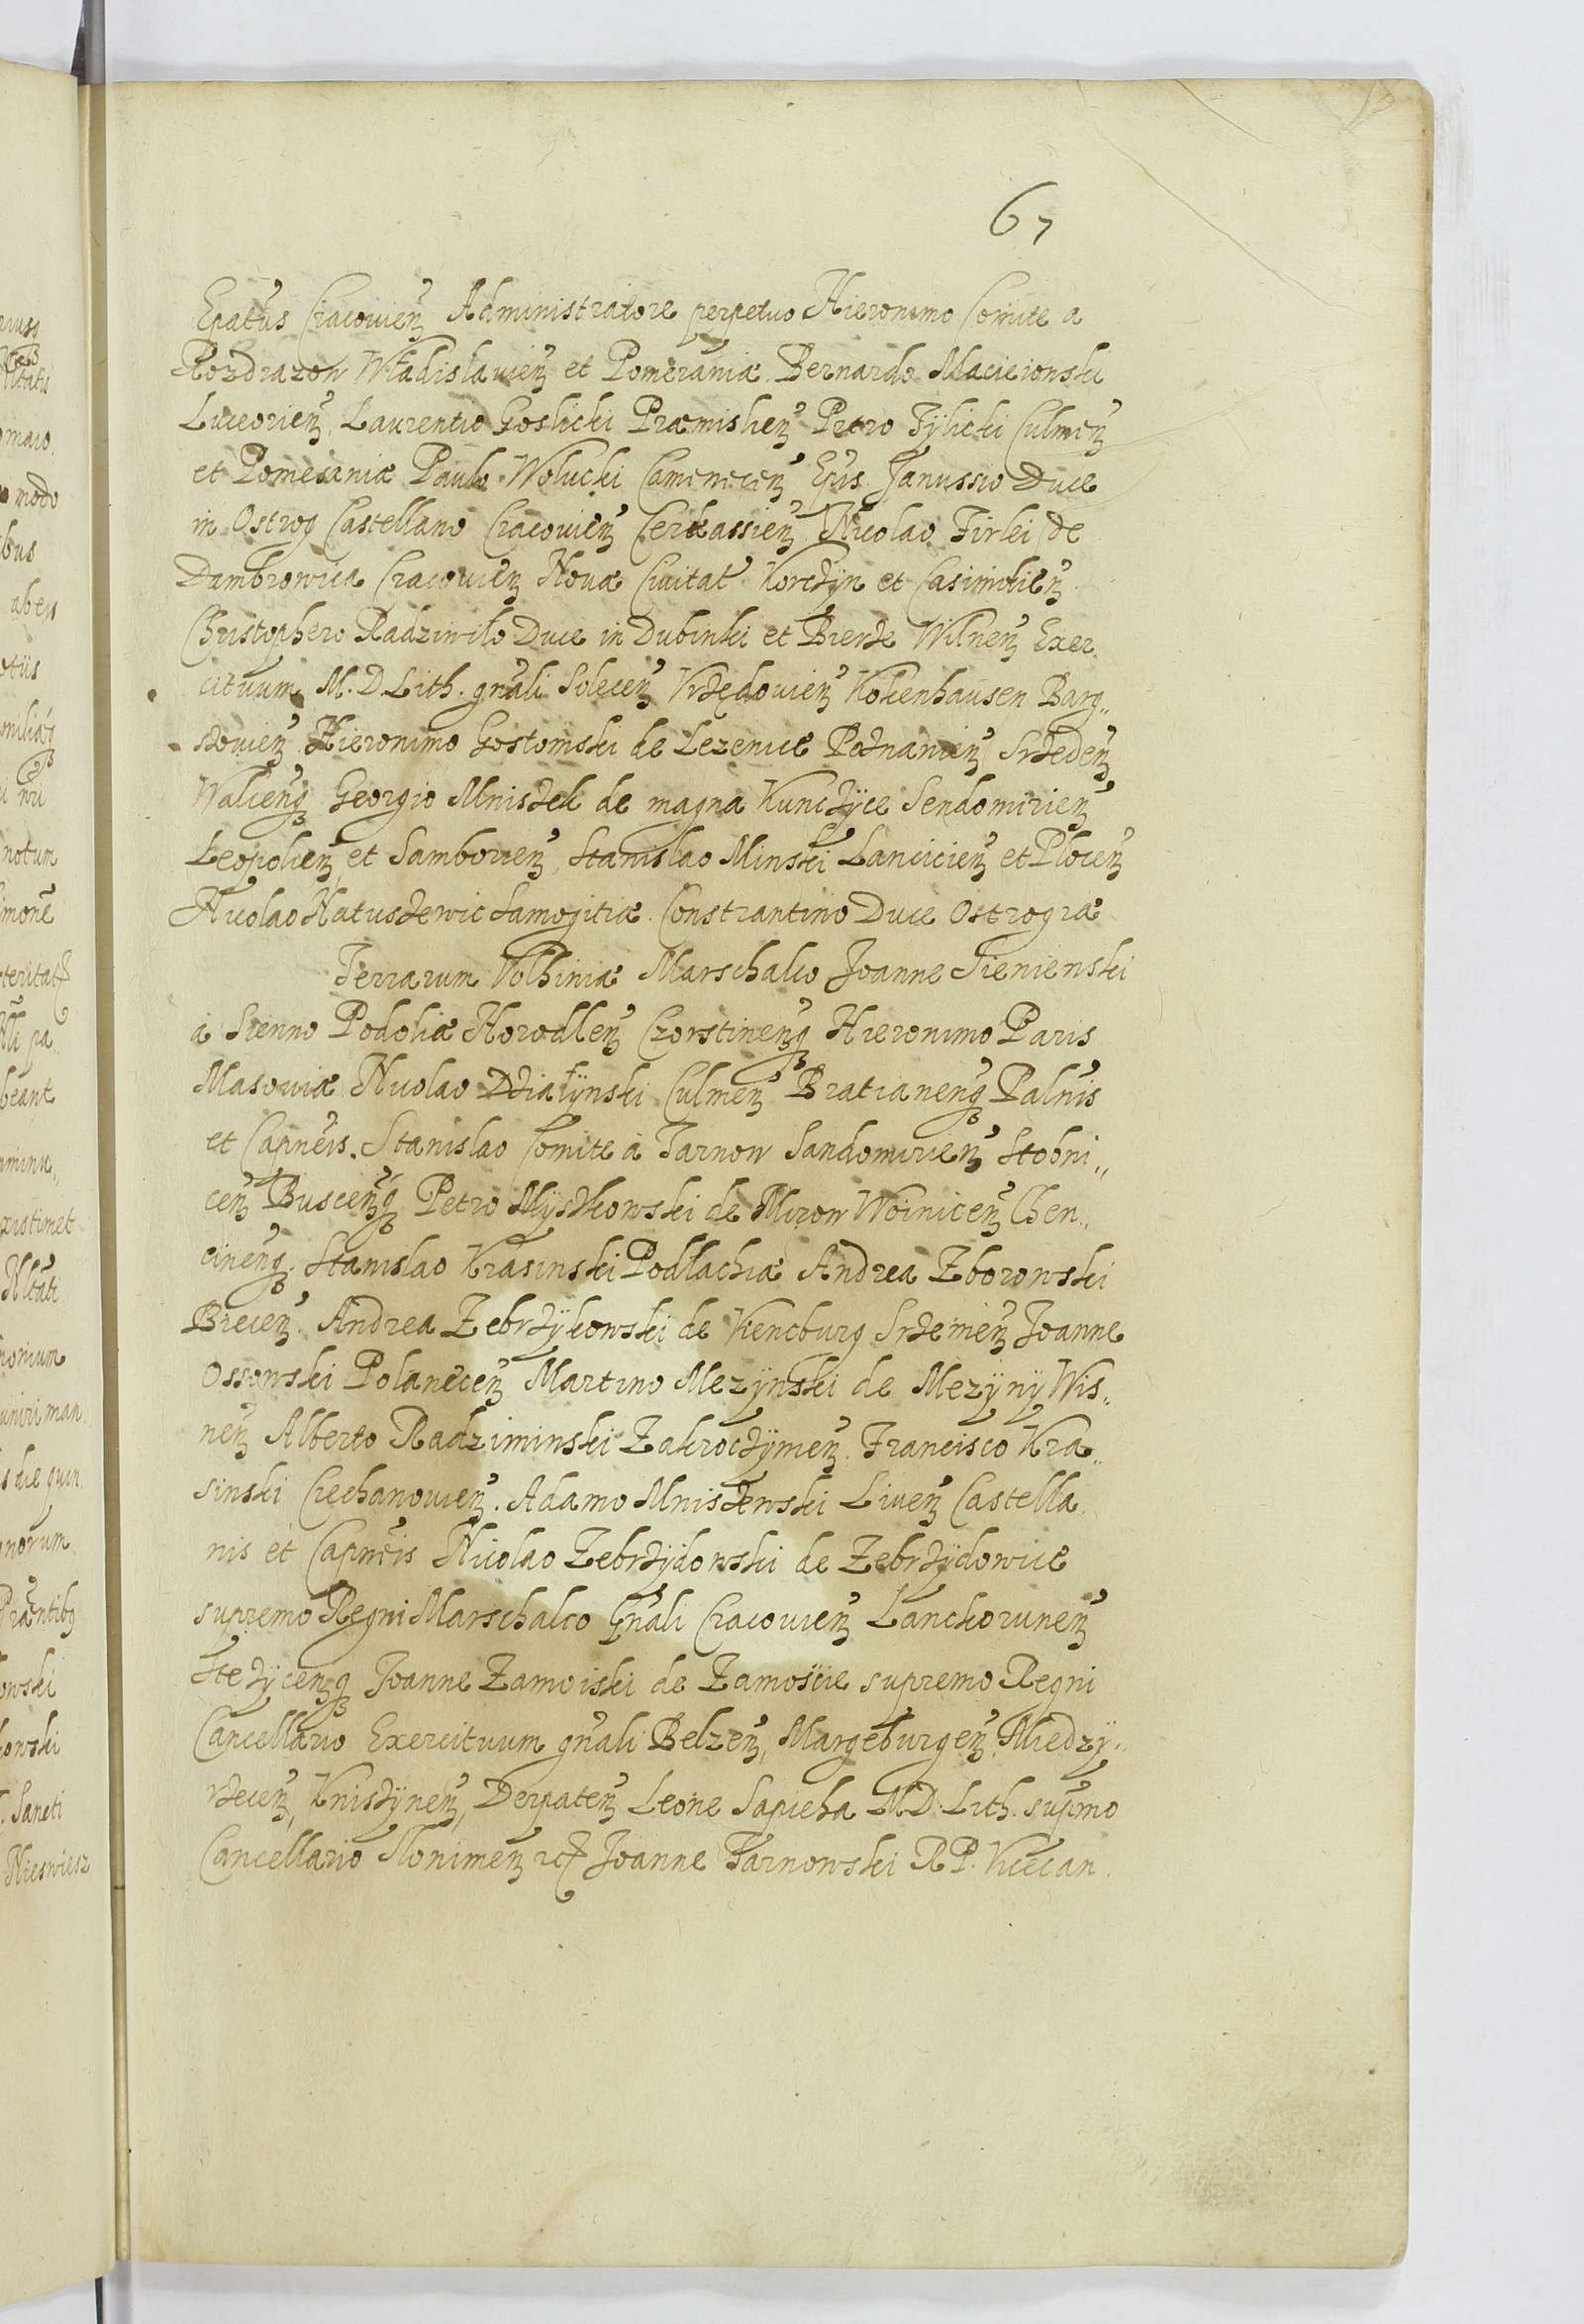 67
Epatus Cracovien Administratore perpetuo Hieronimo Comite a
Rozdrazow Władislavien et Pomeraniæ Bernardo Macieionski
Luceorien, Laurentio Goslicki Præmislien Petro Tÿlicki Culmen
et Pomesaniæ Paulo Wolucki Camenecen Epis Janussio Duce
in Ostrog Castellano Cracovien Cerkassien Nicolao Firlei de
Dambrowica Cracovien Novæ Civitat Korczÿn et Casimirien
Christophero Radziwiło Duce in Dubinki et Bierze Wilnen Exer
cituum M. D. Lith. gnali Solecen Krzędovien Kokenhausen Barg„
zovien Hieronimo Gostomski de Lezenice Poznanien Srzeden
Walcenq Georgio Mniszek de magna Kunczÿce Sendomirien
Leopolien, et Samborien, Stanislao Minski Lancicien et Plocen
Nicolao Natuszewic Samogitiæ. Constrantino Duce Ostrogiæ
Terrarum Volhiniæ Marschalco Joanne Sienienski
á Sienno Podoliæ Horodllen Czorstinenq Hieronimo Paris
Masoviæ Nicolao Dzialÿnski Culmen Bratianenq Palnis
et Capneis. Stanislao Comite á Tarnow Sandomirien Stobni„
cen Buscenq Petro Mÿszkowski de Mirow Woinicen Chen„
cinenq. Stanislao Krasinski Podlachiæ Andrea Zborowski
Brecen. Andrea Zebrzÿkowski de Kencburg Srzemen Joanne
Ossowski Polanecen Martino Mezÿnski de Mezÿnÿ Wis„
nen Alberto Radziminski Zakroczÿmen. Francisco Kra„
sinski Ciechanovien. Adamo Mniszewski Liven Castella
nis et Capneis Nicolao Zebrzÿdowski de Zebrzÿdowice
supremo Regni Marschalco Gnali Cracovien Lanckorunen
Stezÿcenq Joanne Zamoiski de Zamoscie supremo Regni
Cancellario Exercituum gnali Belzen, Margeburgen, Miedzÿ„
rzecen, Kniszÿnen, Derpaten Leone Sapieha M D. Lith. supmo
Cancellario Slonimen Joanne Tarnowski R P. Vicecan